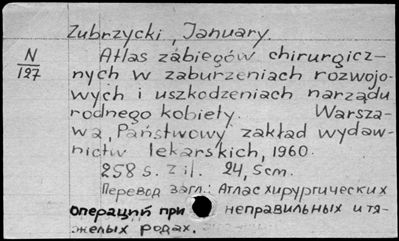 Zubrzycki, January.
N
127
Atlas zabiegów chirurgicz-
nych w zaburzeniach rozwojo-
wych i uszkodzeniach narządu
rodnego kobiety. Warsza-
wa, Państwowy zakład wydaw-
nictw lekarskich, 1960.
258 s. z il. 24,5cm.
Перевод загл.: Атлас хирургических
операций при неправильных и тя-
желых родах.